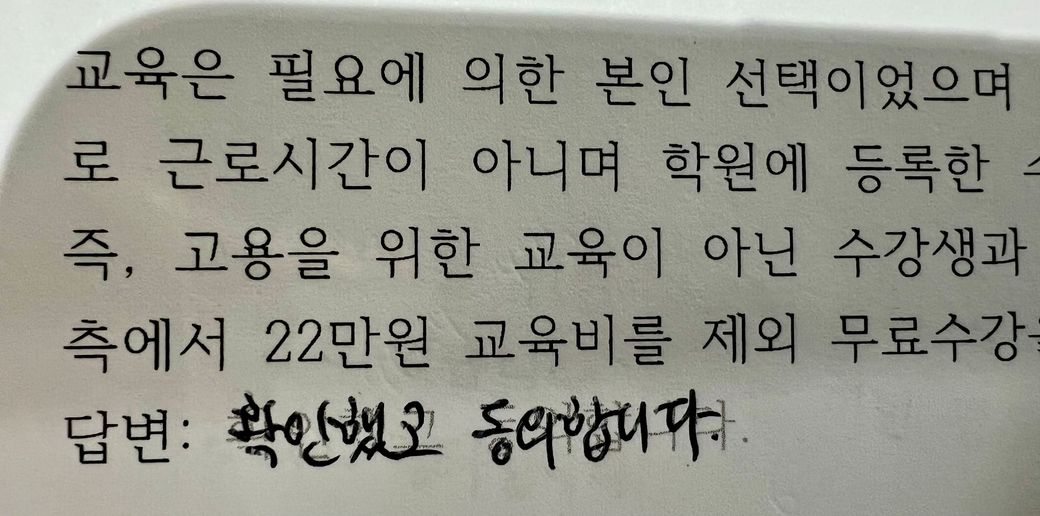 교육은 필요에 의한 본인 선택이었으며
로 근로시간이 아니며 학원에 등록한
즉, 고용을 위한 교육이 아닌 수강생과
측에서 22만원 교육비를 제외 무료수강을
답변: 확인했고 동의합니다.